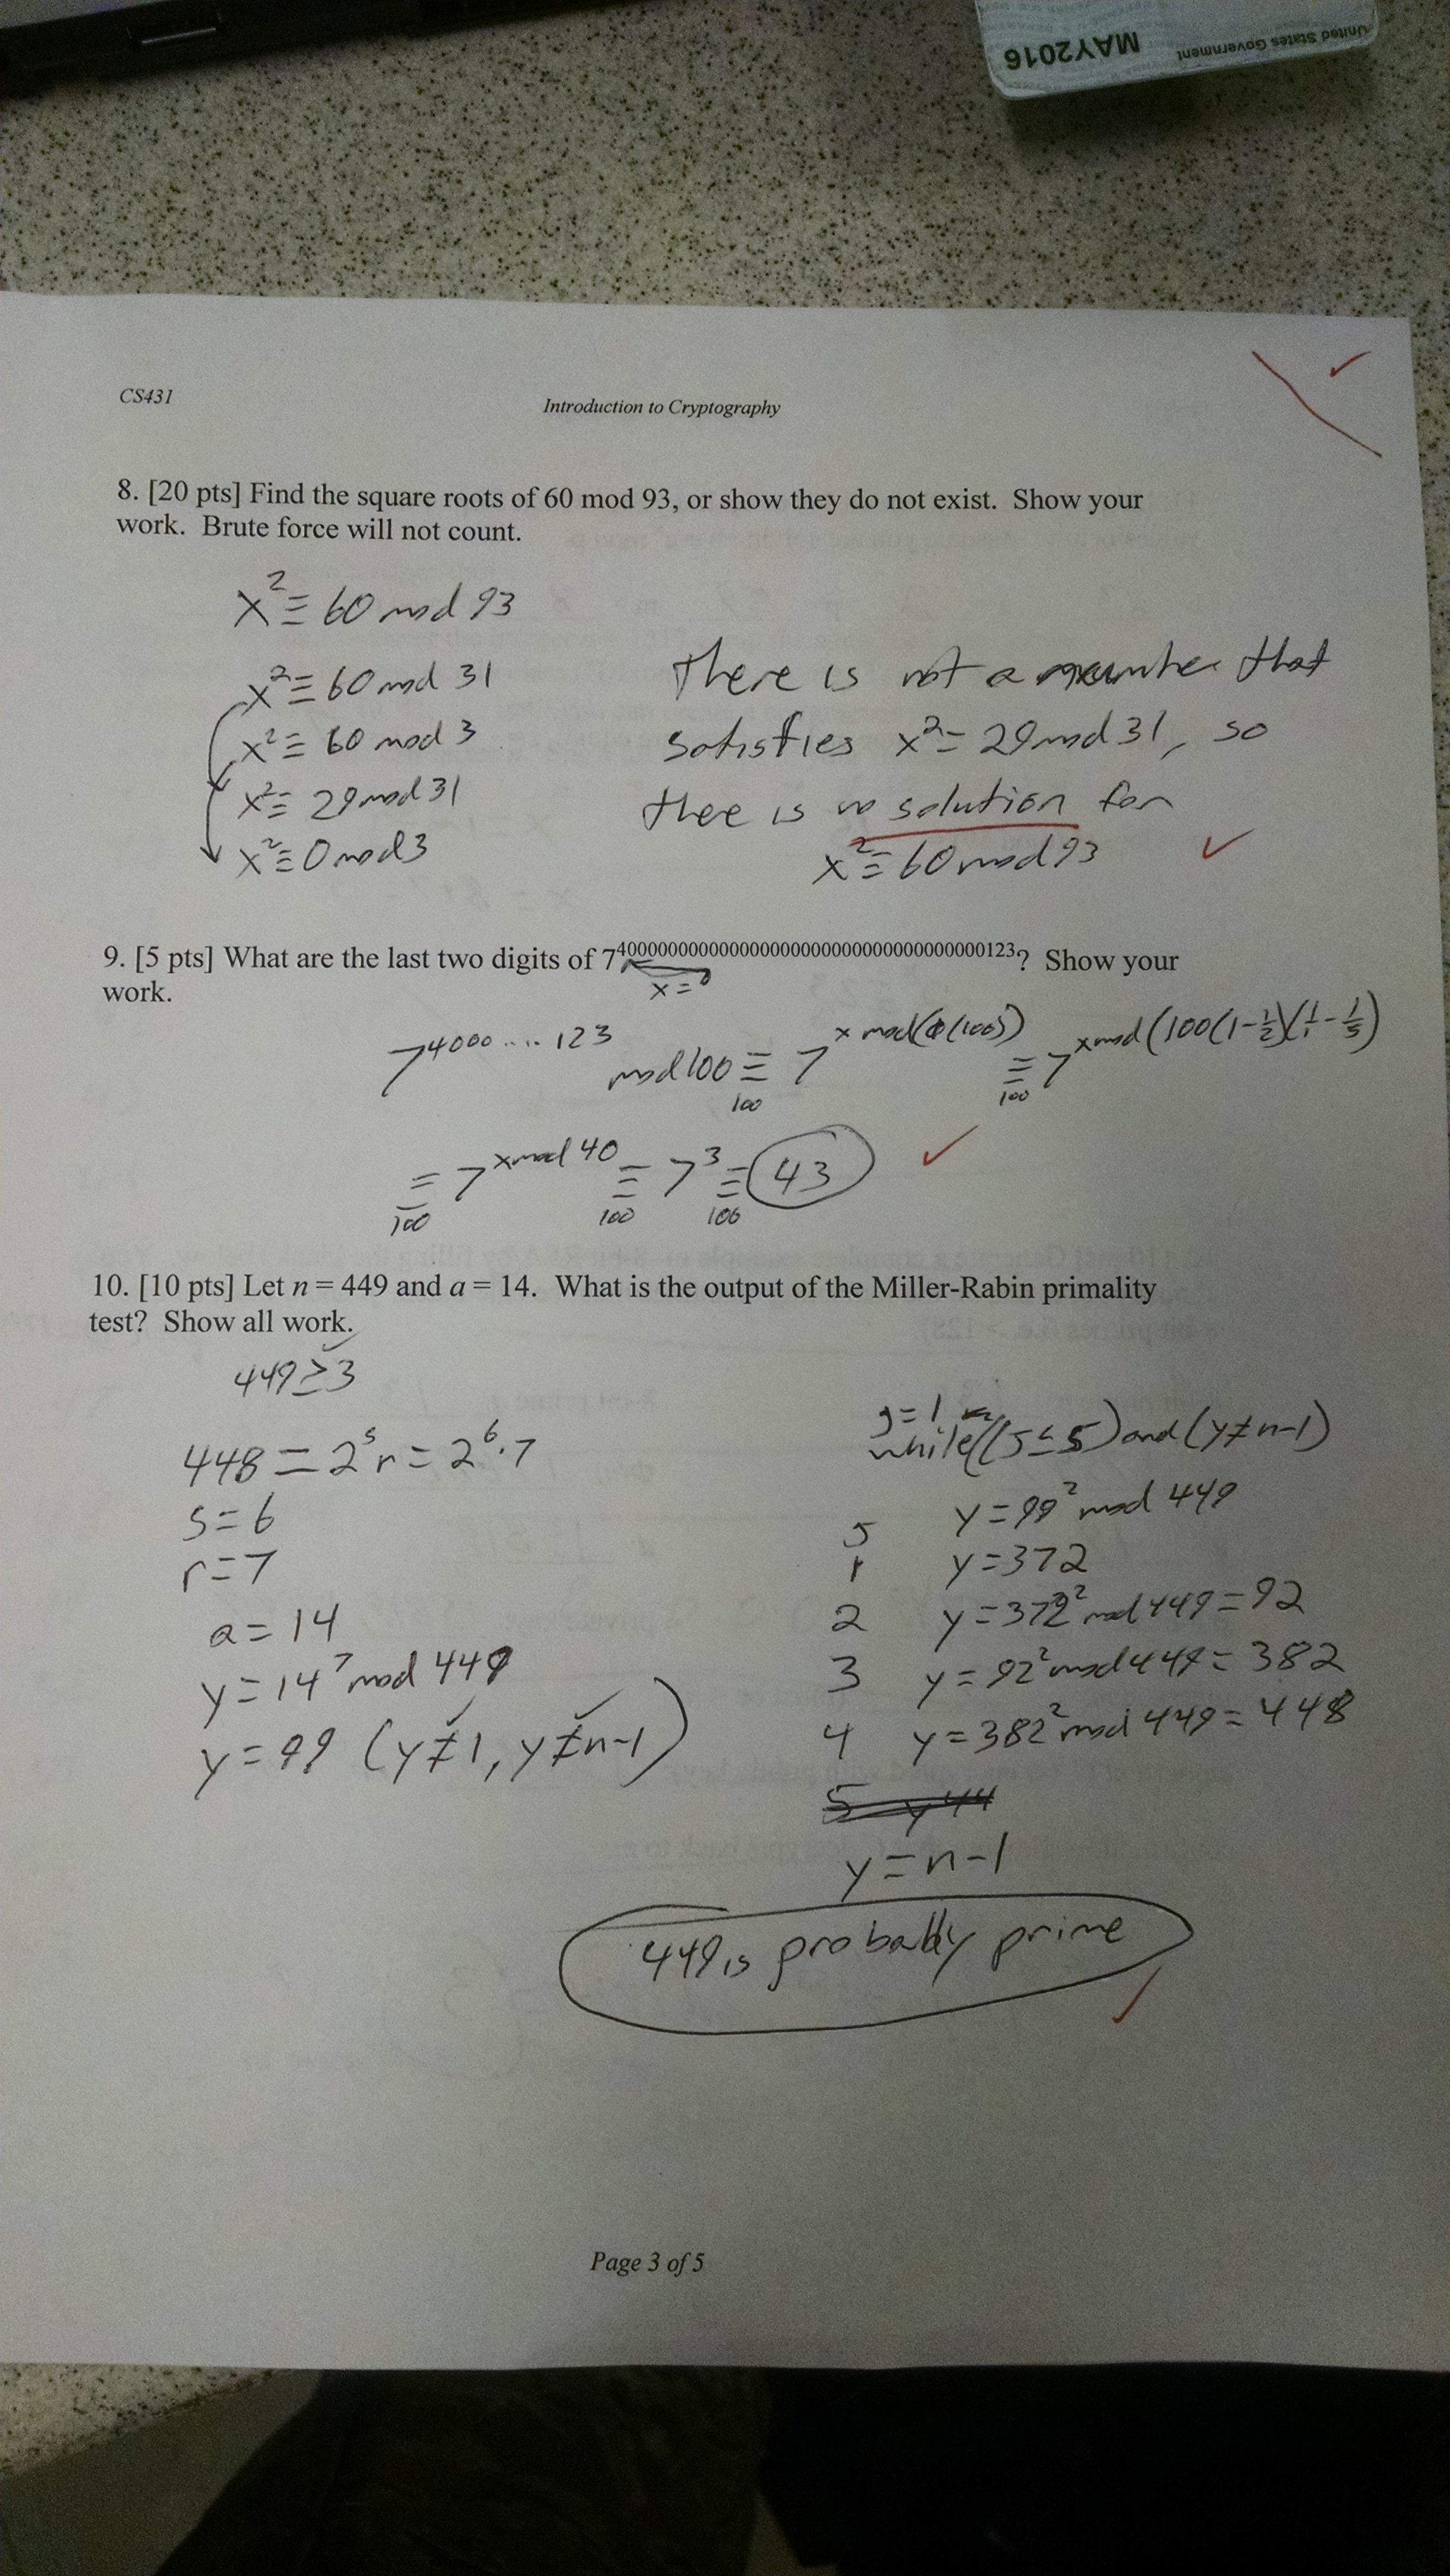 United States Government
MAY2016
CS431
Introduction to Cryptography
8. [20 pts] Find the square roots of 60 mod 93, or show they do not exist. Show your
work. Brute force will not count.
x² ≡ 60 mod 93
x² ≡ 60 mod 31
x² ≡ 60 mod 3
x² ≡ 29 mod 31
x² ≡ 0 mod 3
There is not a number that
satisfies x² = 29 mod 31, so
there is no solution for
x² ≡ 60 mod 93
9. [5 pts] What are the last two digits of 7^400000000000000000000000000000000000000123? Show your
work.
x =
7^4000....123 mod 100 ≡100 7^x mod(ϕ(100)) ≡100 7^x mod (100(1-1/2)(1/1-1/5)
≡100 7^x mod 40 ≡100 7³ ≡100 43
10. [10 pts] Let n = 449 and a = 14. What is the output of the Miller-Rabin primality
test? Show all work.
449 ≥ 3
448 = 2^s r = 2^6 · 7
s = 6
r = 7
a = 14
y = 14^7 mod 449
y = 99 (y ≠ 1, y ≠ n-1)
j = 1
while((j ≤ 5) and (y ≠ n-1)
y = 99² mod 449
j
1 y = 372
2 y = 372² mod 449 = 92
3 y = 92² mod 449 = 382
4 y = 382² mod 449 = 448
y = n-1
449 is probably prime
Page 3 of 5